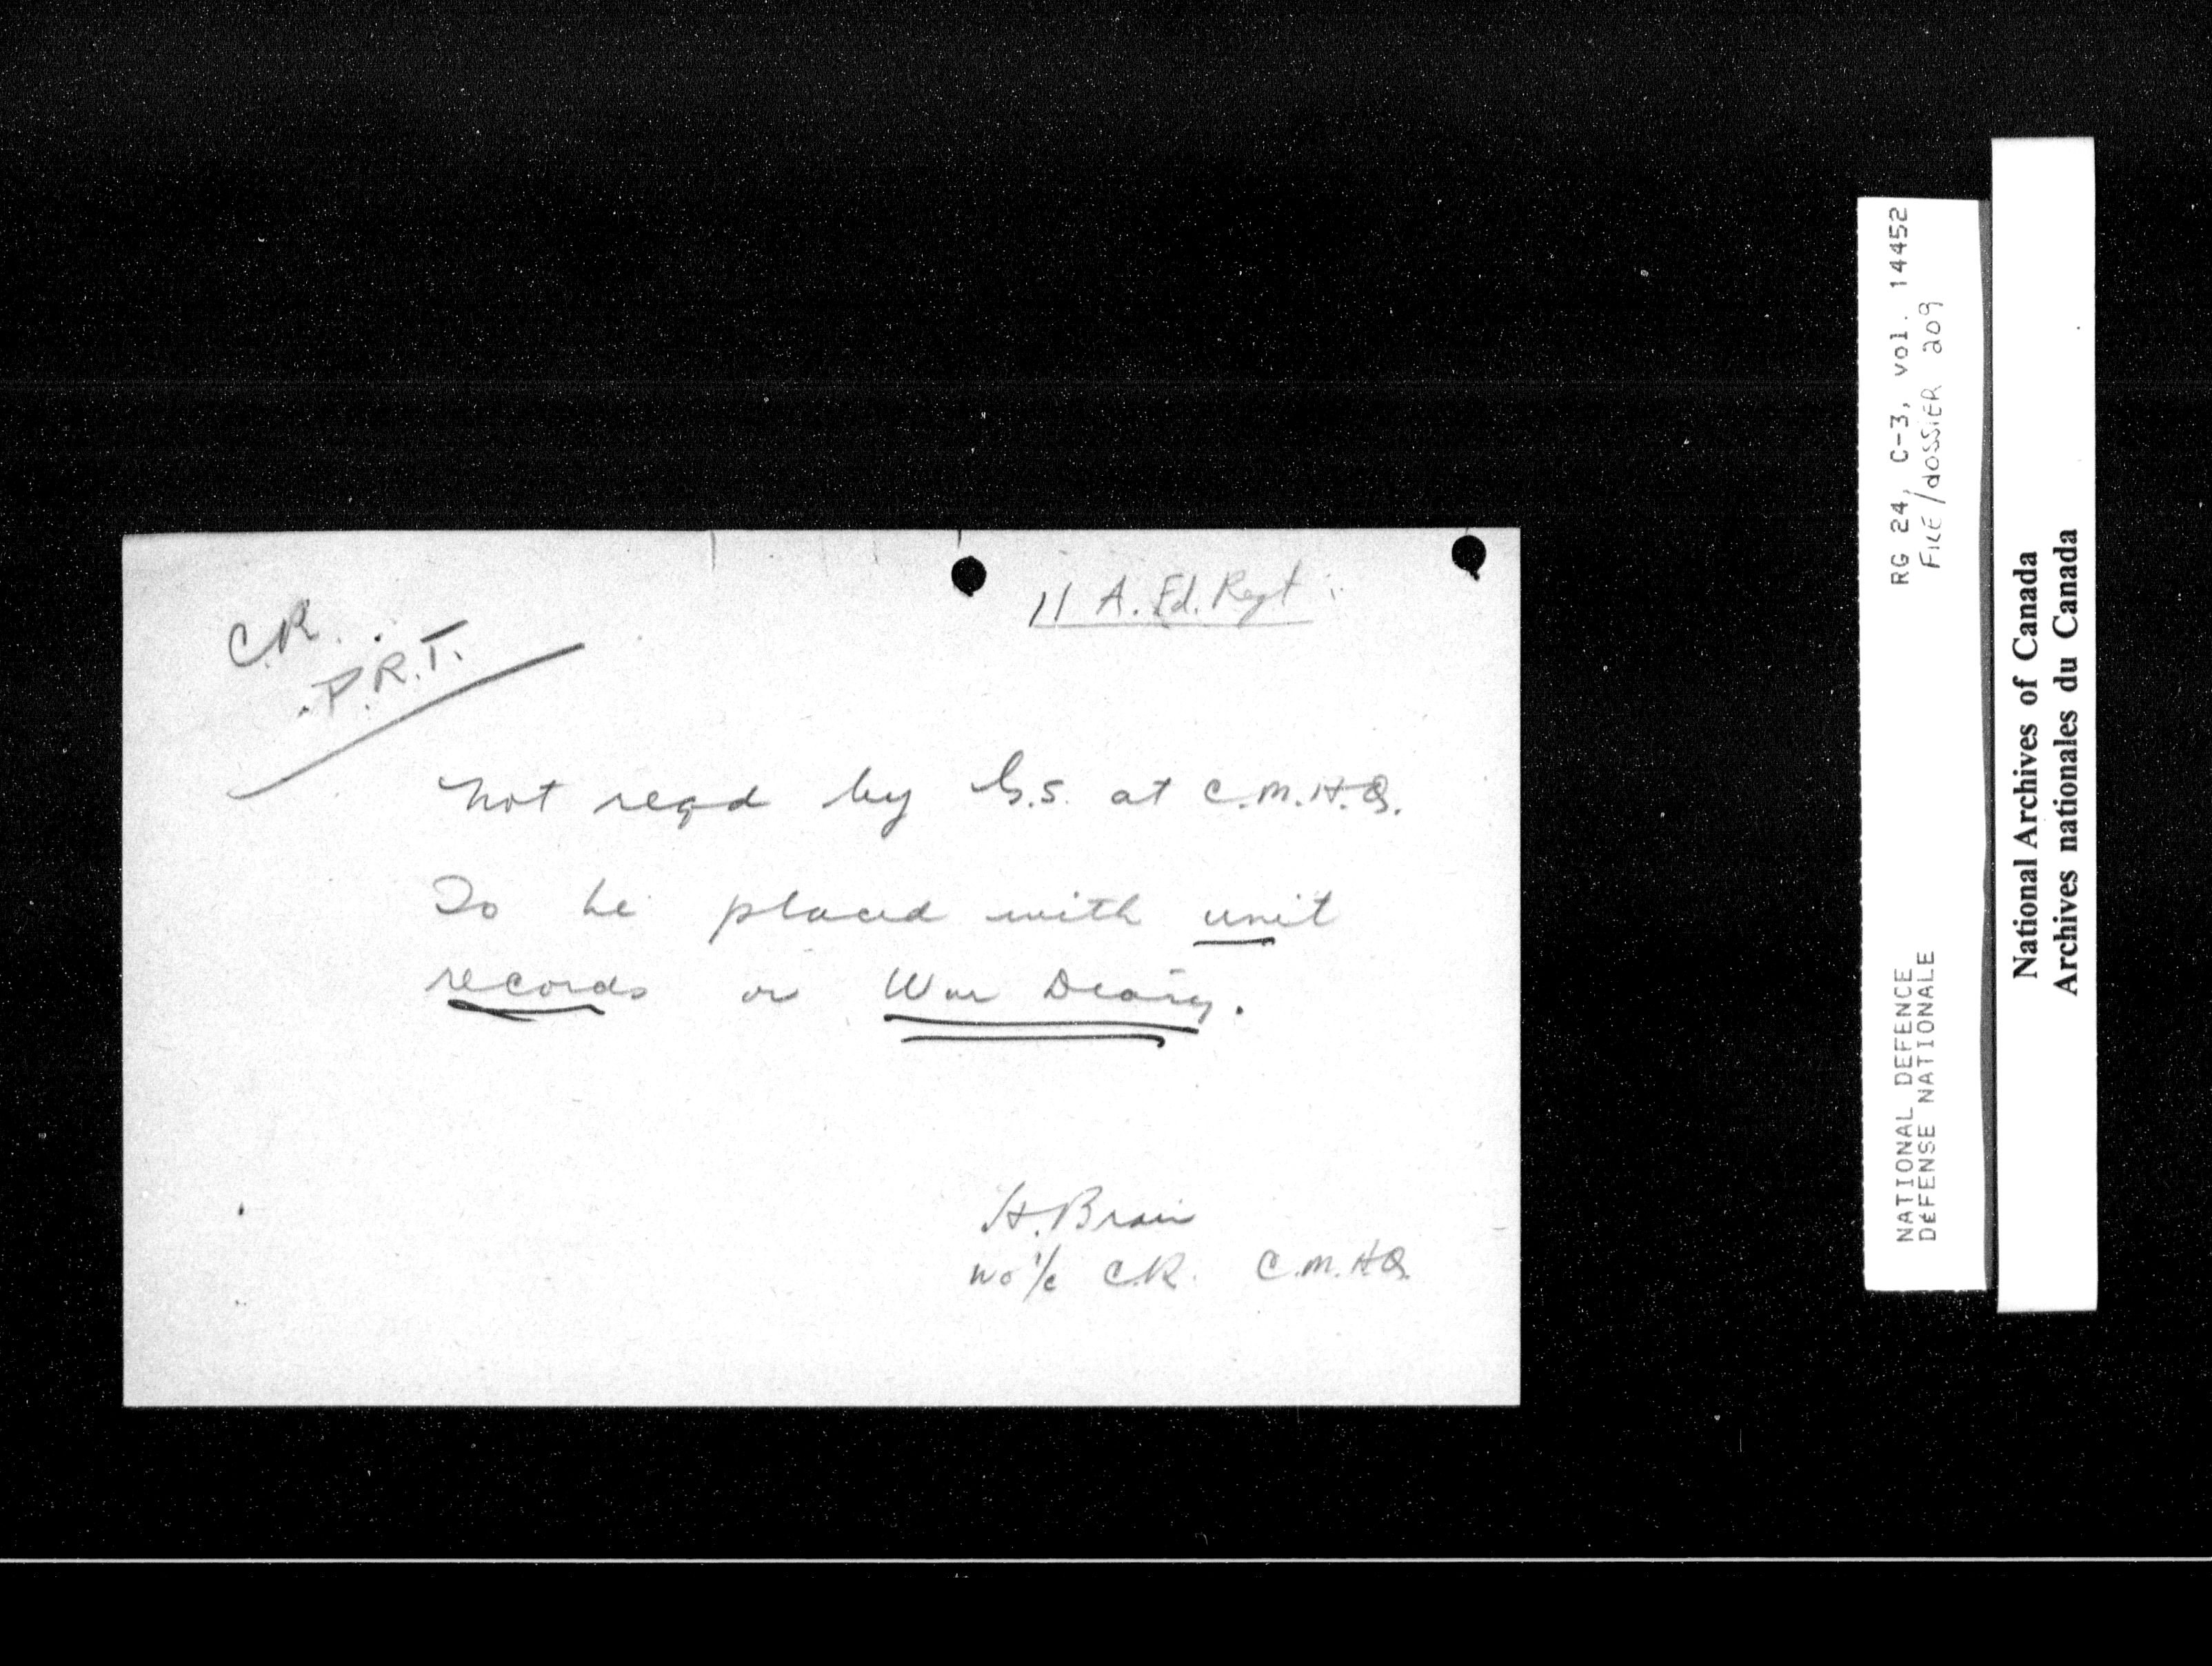 11 A. Fd. Regt
C.R.
P.R.T.
Not reqd by G.S. at C.M.H.Q.
To be placed with unit
records or War Diary.
H. Brain
WO i/c C.R. C.M.H.Q.
RG 24, C-3, vol. 14452
FILE/dOSSiER 209
NATIONAL DEFENCE
DÉFENSE NATIONALE
National Archives of Canada
Archives nationales du Canada